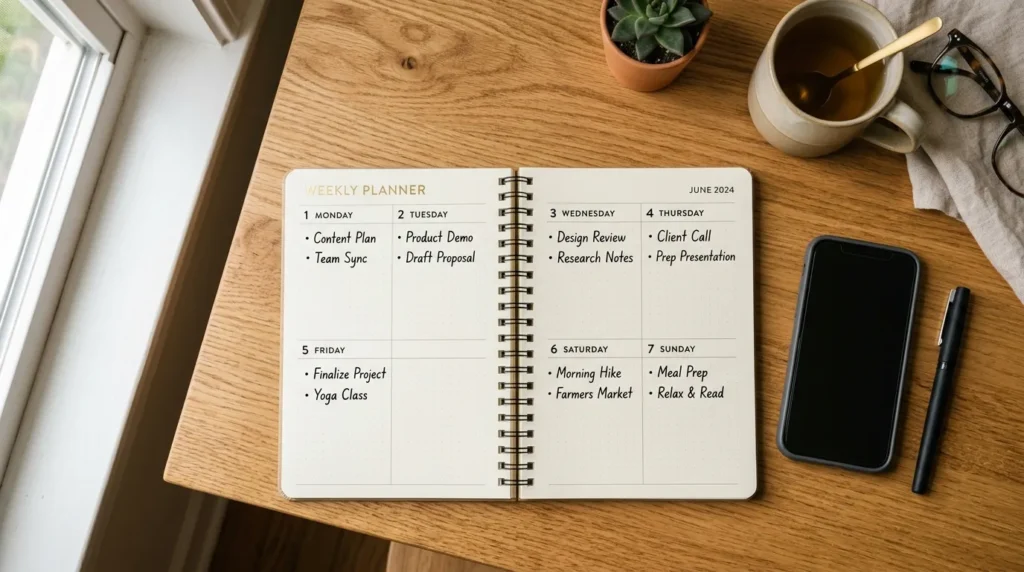 WEEKLY PLANNER
1 MONDAY
• Content Plan
• Team Sync
2 TUESDAY
• Product Demo
• Draft Proposal
5 FRIDAY
• Finalize Project
• Yoga Class
JUNE 2024
3 WEDNESDAY
• Design Review
• Research Notes
4 THURSDAY
• Client Call
• Prep Presentation
6 SATURDAY
• Morning Hike
• Farmers Market
7 SUNDAY
• Meal Prep
• Relax & Read